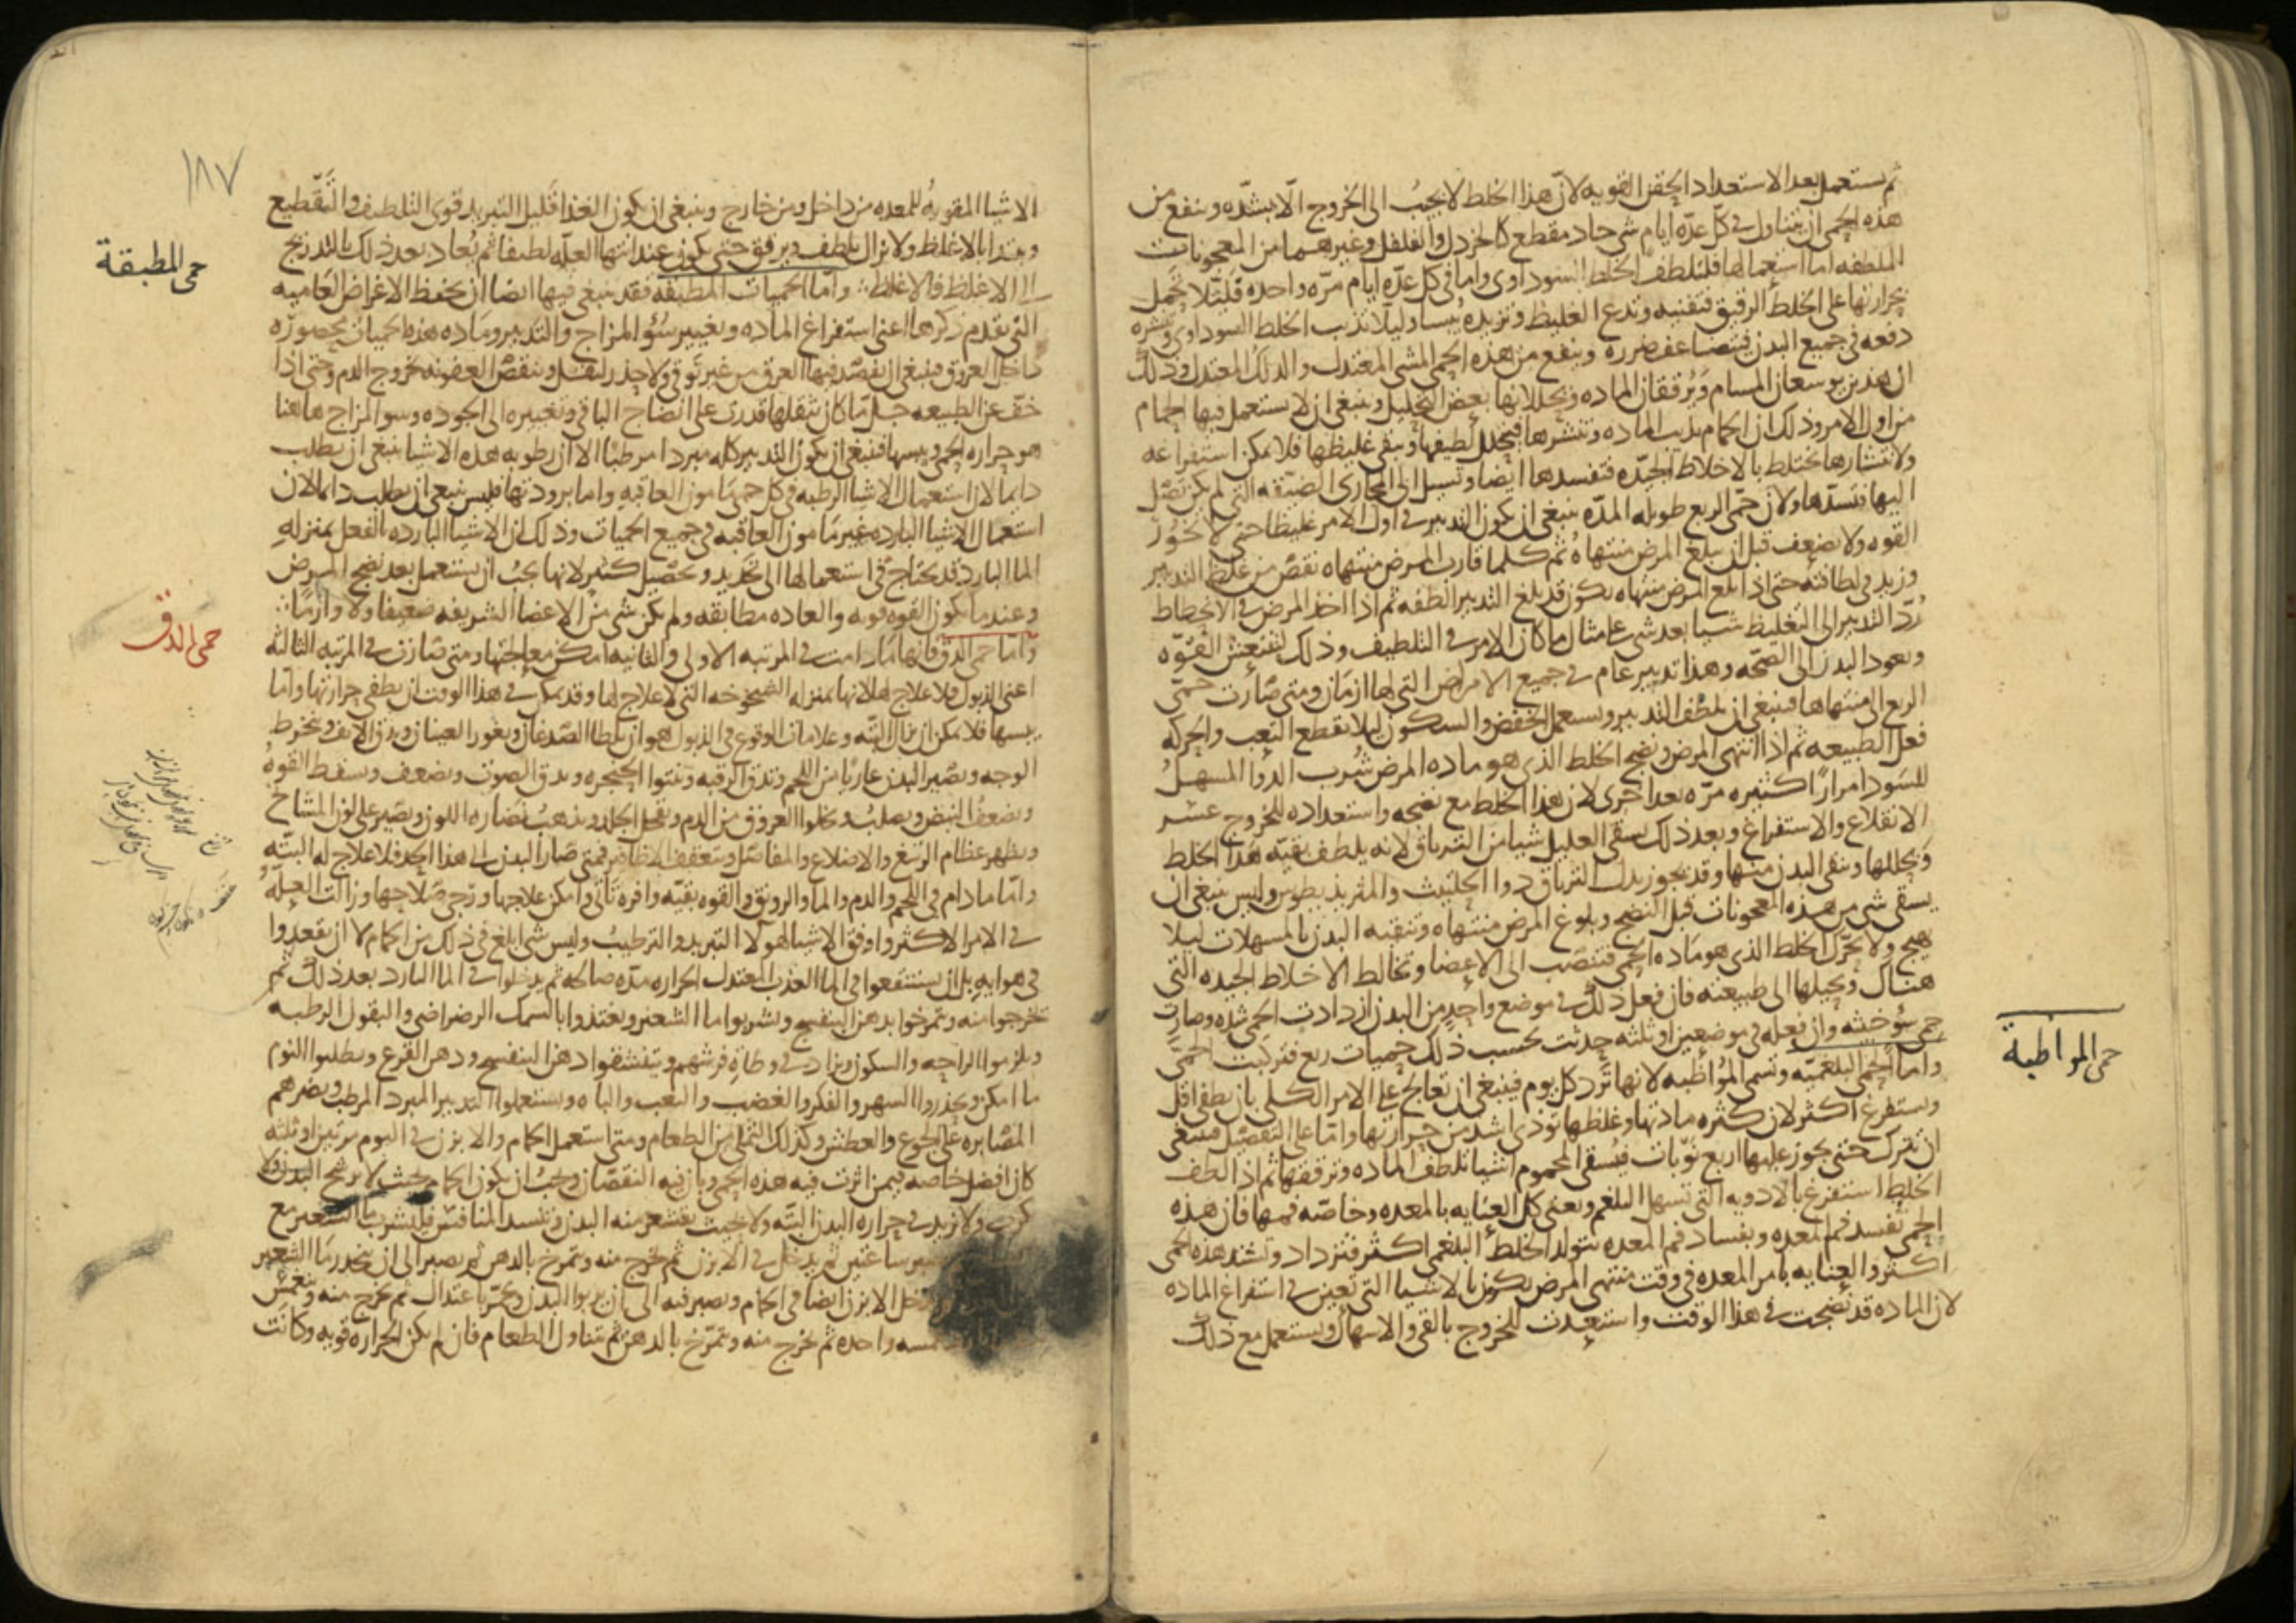 ثم يستعمل بعد الاستعداد الحقن القويه لان هذا الخلط لا يجيب الى الخروج الّا بشدّه وينفع من
هذه الحمى ان يتناول في كلّ عدّه ايام شي حاد مقطع كالخردل والفلفل وغيرهما من المعجونات
الملطفه اما استعمالها فلتلطف الخلط السوداوى واما في كل عدّه ايام مرّه واحده فليلا تحمل
بحرارتها على الخلط الرقيق فتفنيه وتدع الغليظ وتزيده يبسا وليلا تذيب الخلط السوداوى وتنشره
دفعه في جميع البدن فيتضاعف ضرره وينفع من هذه الحمى المشى المعتدل والدلك المعتدل وذلك
ان هذين يوسعان المسام ويرققان الماده ويحللانها بعض التحليل وينبغي ان لا يستعمل فيها الحمام
من اول الامر وذلك ان الحمام يذيب الماده وينشرها فيتحلل لطيفها ويبقى غليظها فلا يمكن استفراغه
ولانتشارها تختلط بالاخلاط الجيّده فتفسدها ايضا وتسيل الى المجارى الضيقه التى لم يكن تصل
اليها فتسدّها ولان حمّى الربع طويله المدّه ينبغي ان يكون التدبير في اول الامر غليظا حتى لا تخور
القوه ولا يضعف قبل ان يبلغ المرض منتهاه ثم كلما قارب المرض منتهاه نقص من غلظ التدبير
وزيد في لطافته حتى اذا بلغ المرض منتهاه يكون قد بلغ التدبير الطفه ثم اذا اخذ المرض في الانحطاط
رُدّ التدبير الى التغليظ شيا بعد شي على مثال ما كان الامر في التلطيف وذلك لتنتعش القوّه
ويعود البدن الى الصحّه وهذا تدبير عام في جميع الامراض التى لها ازمان ومتى صارت حمّى
الربع الى منتهاها فينبغي ان يلطف التدبير ويستعمل الخفض والسكون ليلا يقطع التعب والحركه
فعل الطبيعه ثم اذا انتهى المرض ونضج الخلط الذى هو ماده المرض شرب الدوا المسهل
للسودا مرارًا كثيره مرّه بعد اخرى لان هذا الخلط مع نضجه واستعداده للخروج عسر
الانقلاع والاستفراغ وبعد ذلك يسقى العليل شيا من الترياق لانه يلطف بقيّه هذا الخلط
ويحللها وينقى البدن منها وقد يجوز بدل الترياق دوا الحلتيت والمثريذيطوس وليس ينبغي ان
يسقى شى من هذه المعجونات قبل النضج وبلوغ المرض منتهاه وتنقيه البدن بالمسهلات ليلا
يهيج ولا يحرّك الخلط الذى هو ماده الحمى فتنصب الى الاعضا وتخالط الاخلاط الجيده التى
هناك ويحيلها الى طبيعته فان فعل ذلك في موضع واحد من البدن ازدادت الحمى شده وصارت
حمى سوخيثه وان فعله في موضعين او ثلثه حدثت بحسب ذلك حميات ربع فتركبت الحمّى
واما الحمى البلغميّه وتسمى المواظبه لانها ترد كل يوم فينبغي ان تعالج على الامر الكلى بان يطفى اقل
ويستفرغ اكثر لان كثره مادتها وغلظها توذى اشد من حرارتها واما على التفصيل فينبغي
ان تترك حتى يجوز عليها اربع نوبات فيسقى المحموم اشيا تلطف الماده وترققها ثم اذا لطف
الخلط استفرغ بالادويه التى تسهل البلغم ويعنى كل العنايه بالمعده وخاصّه فمها فان هذه
الحمى تفسد فم المعده وبفساد فم المعده يتولد الخلط البلغمى اكثر فتزداد وتشتد هذه الحمى
اكثر والعنايه بامر المعده في وقت منتهى المرض يكون بالاشيا التى تعين في استفراغ الماده
لان الماده قد نضجت في هذا الوقت واستعدت للخروج بالقى والاسهال ويستعمل مع ذلك
حمى المواظبة
١٨٧
الاشيا المقويه للمعده من داخل ومن خارج وينبغي ان يكون الغذا قليل التبريد قوى التلطيف والتقطيع
ويبتدا بالاغلظ ولا يزال يلطف ويرفق حتى يكون عند انتها العلّه لطيفا ثم يُعاد بعد ذلك بالتدريج
الى الاغلظ فالاغلظ واما الحميات المطبقه فقد ينبغي فيها ايضا ان يحفظ الاغراض العاميه
التى تقدم ذكرها اعنى استفراغ الماده وتغيير سؤ المزاج والتدبير وماده هذه الحميات محصوره
داخل العروق فينبغي ان يفصد فيها العرق من غير توقى ولا حذر لتقل وينقص العفونه بخروج الدم وحتى اذا
خف عن الطبيعه جلّ ما كان يثقلها قدرت على انضاج الباقى وتغييره الى الجوده وسو المزاج هاهنا
هو حراره الحمى ويبسها فينبغي ان يكون التدبير كله مبردا مرطبا الا ان رطوبه هذه الاشيا ينبغي ان يطلب
دايما لان استعمال الاشيا الرطبه في كل حمى مامون العاقبه واما برودتها فليس ينبغي ان يطلب دايما لان
استعمال الاشيا البارده غير مامون العاقبه في جميع الحميات وذلك ان الاشيا البارده الفعل بمنزله
الما البارد قد يحتاج في استعمالها الى تحديد وتحصيل كثير لانها يجب ان يستعمل بعد نضج المرض
وعندما يكون القوه قويه والعاده مطابقه ولم يكن شى من الاعضا الشريفه ضعيفا ولا وارما
واما حمى الدق فانها ما دامت في المرتبه الاولى والثانيه امكن معالجتها ومتى صارت في المرتبه الثالثه
اعنى الذبول فلا علاج لها لانها بمنزله الشيخوخه التى لا علاج لها وقد يمكن في هذا الوقت ان يطفى حرارتها واما
يبسها فلا يمكن ان يزال البتّه وعلامات الوقوع في الذبول هو ان يلطا الصدغان ويغور العينان ويدق الانف وينخرط
الوجه ويصير البدن عاريًا من اللحم وتدق الرقبه وتنتوا الحنجره ويدق الصوت ويضعف وتسقط القوه
ويضعف النبض ويصلب وتخلوا العروق من الدم ويقحل الجلد ويذهب نضاره اللون ويصير على لون المشايخ
ويظهر عظام الترقوه والاضلاع والمفاصل وتتعقف الاظافير فمتى صار البدن الى هذا الحد فلا علاج له البتّه
واما ما دام في اللحم والدم والما والرونق والقوه بقيّه وافره تاتّى وامكن علاجها ورجى صلاحها وزالت العلّه
في الامر الاكثر واوفق الاشيا لهولا التبريد والترطيب وليس شى ابلغ في ذلك من الحمام لا ان يقعدوا
في هوايه بل ان يستنقعوا في الما العذب المعتدل الحراره مدّه صالحه ثم يدخلوا في الما البارد بعد ذلك ثم
يخرجوا منه ويمرخوا بدهن البنفسج ويشربوا ما الشعير ويغتذوا بالسمك الرضراضى والبقول الرطبه
ويلزموا الراحه والسكون ويزاد في وطاة فرشهم ويتنشقوا دهن البنفسج ودهن القرع ويطلبوا النوم
ما امكن ويحذروا السهر والفكر والغضب والتعب والباه ويستعملوا التدبير المبرد المرطب ويضرهم
المصابره على الجوع والعطش وكذلك التملى من الطعام ومتى استعمل الحمام والابزن في اليوم مرتين او ثلثه
كان افضل خاصه فيمن اثرت فيه هذه الحمى وبان فيه النقصان ويجب ان يكون الحمام بحيث لا يرشح البدن ولا
كرب ولا يزيد في حراره البدن البتّه ولا بحيث يقشعر منه البدن وتنسد المنافس فليشرب ما الشعير مع
يصبر ساعتين ثم يدخل في الابزن ثم يخرج منه ويمرخ بالدهن ثم يصبر الى ان ينحدر ما الشعير
يدخل الابزن ايضا في الحمام ويصبر فيه الى ان يربوا البدن ويحمّر باعتدال ثم يخرج منه وينغمس
غمسه واحده ثم يخرج منه ويمرّخ بالدهن ثم يتناول الطعام فان لم يكن الحراره قويه وكانت
حمى المطبقة
حمى الدق